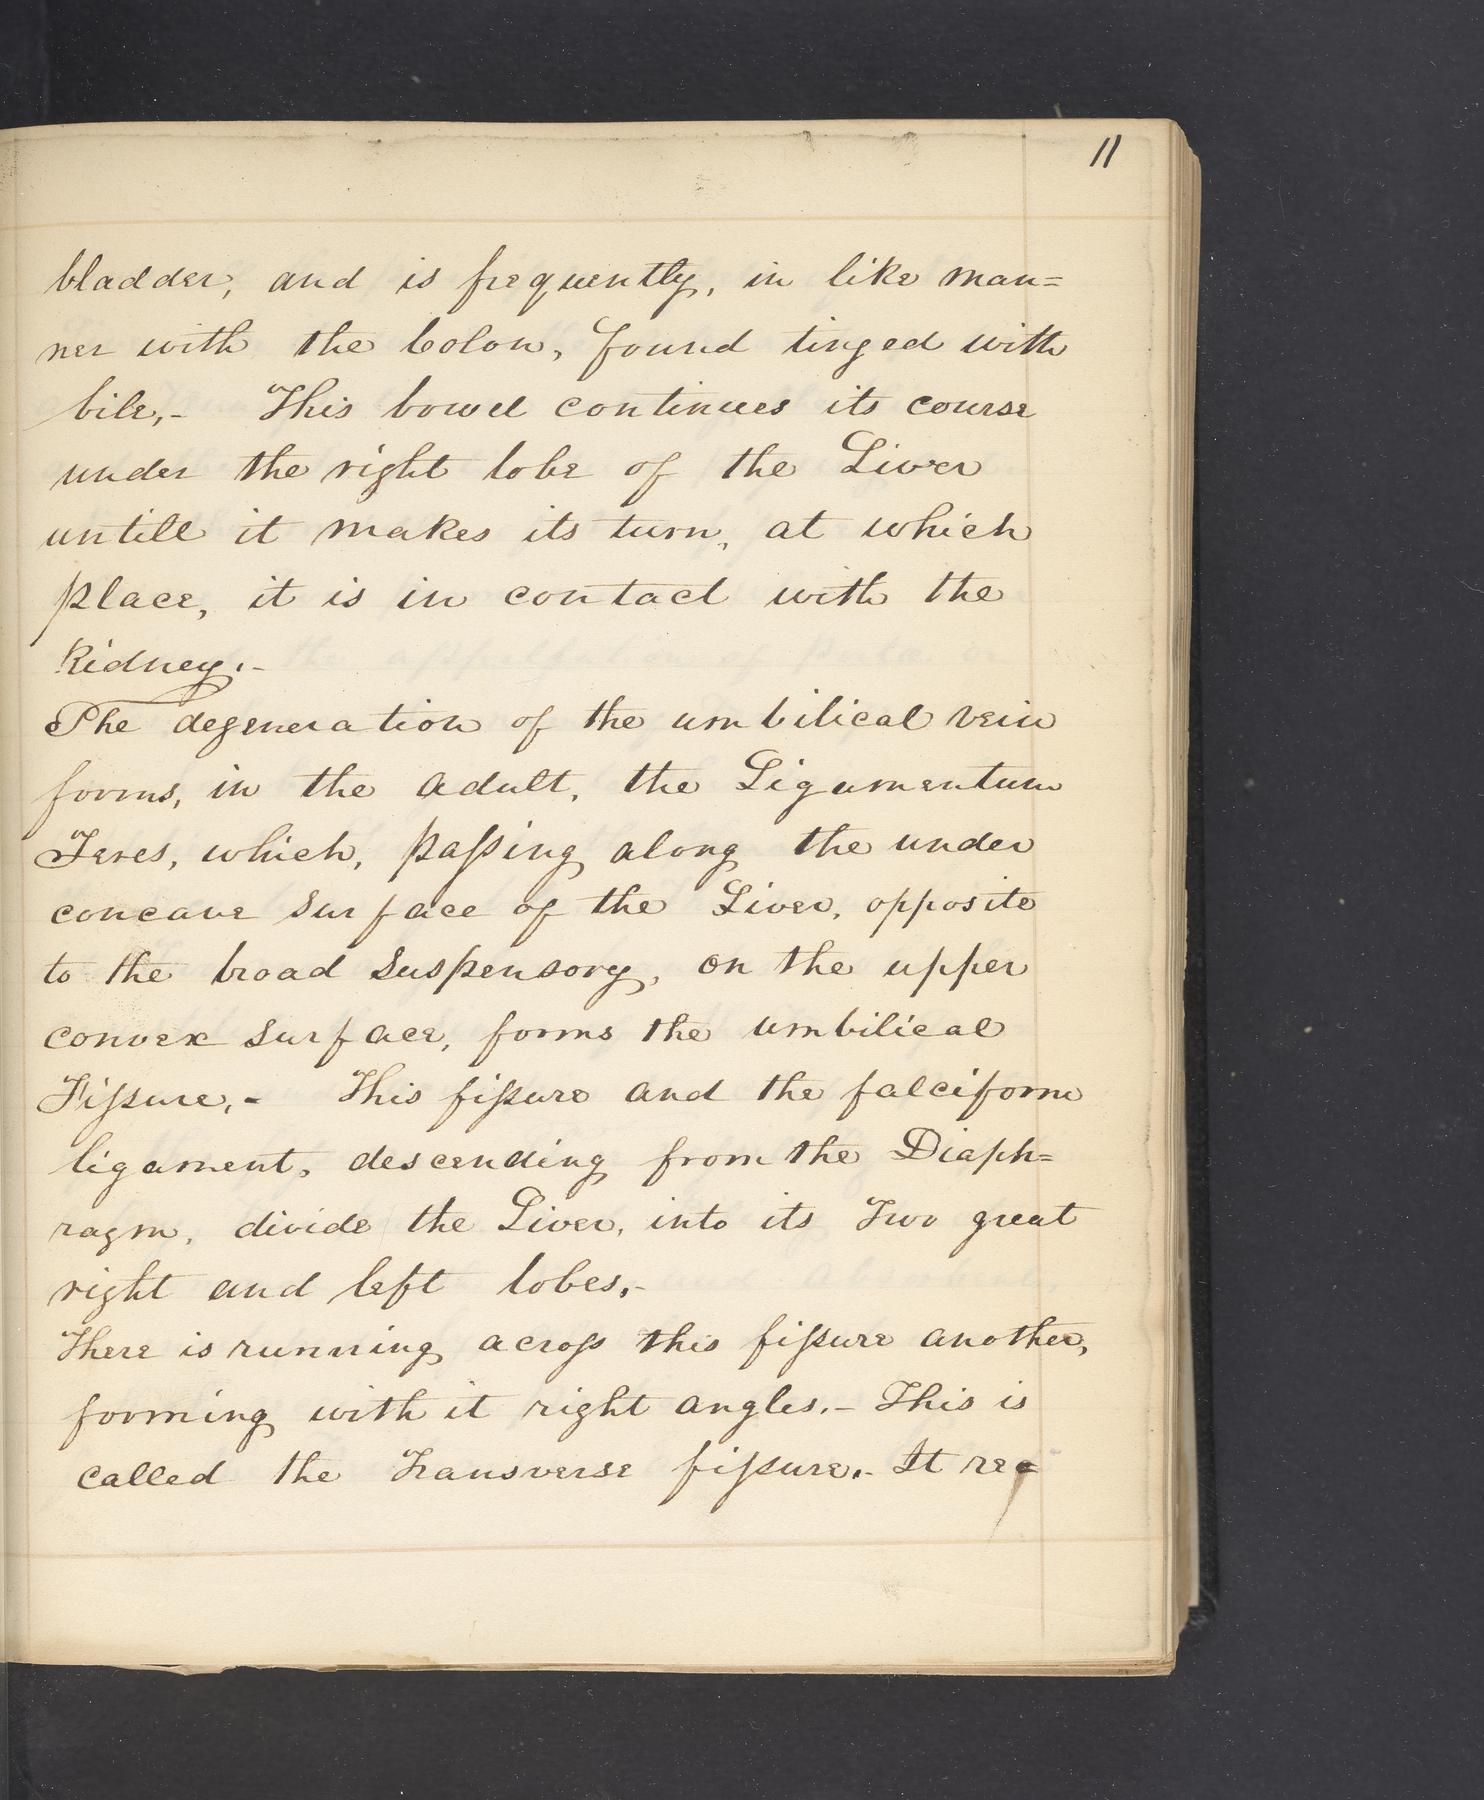 11
bladder, and is frequently, in like man=
ner with the Colon, found tinged with
bile,- This bowel continues its course
under the right lobe of the Liver
untill it makes its turn, at which
place, it is in contact with the
Kidney.-
The degeneration of the umbilical vein
forms, in the adult, the Ligamentum
Teres, which, paſsing along the under
concave surface of the Liver, opposite
to the broad suspensory, on the upper
convex surface, forms the umbilical
Fiſsure,- This fiſsure and the falciform
ligament, descending from the Diaph=
ragm, divide the Liver, into its Two great
right and left lobes,-
There is running acroſs this fiſsure another,
forming with it right angles.- This is
called the Transverse fiſsure.- It re=